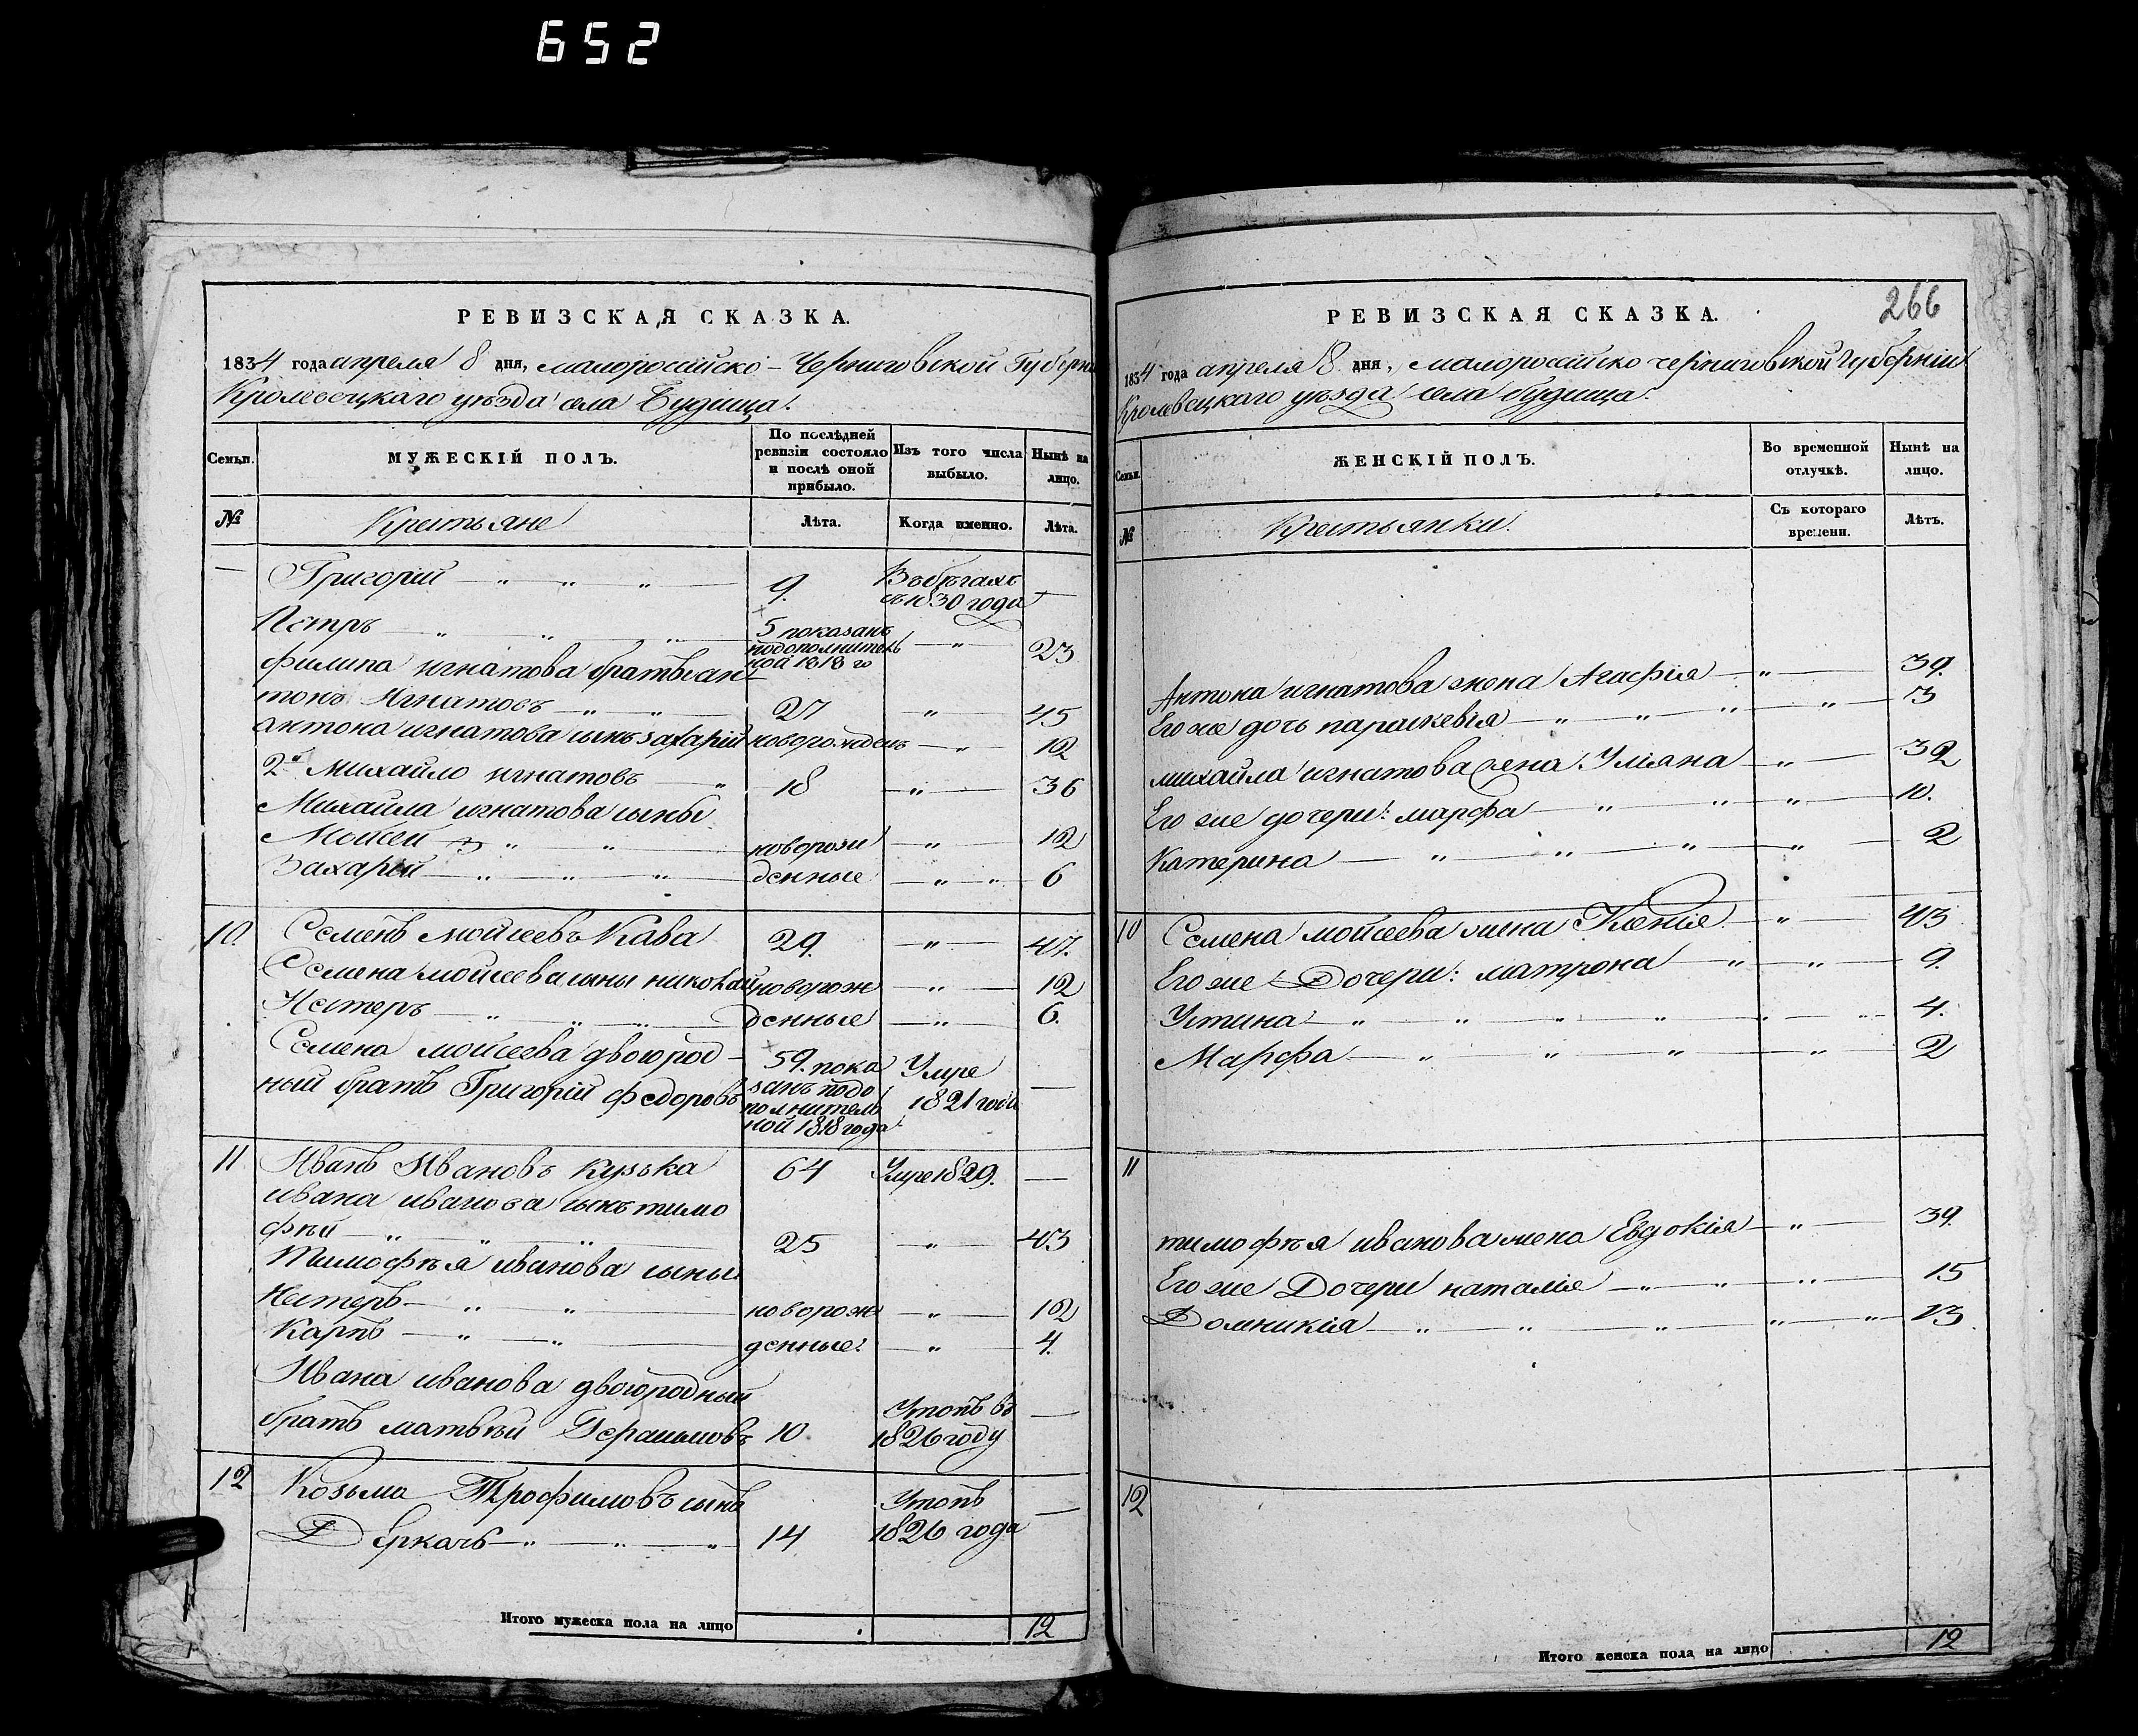 652
РЕВИЗСКАЯ СКАЗКА.
1834 года апреля 8 дня, малоросійско-Черниговской Губерніи
Кролевецкаго уѣзда села Будища.
Семьи. МУЖЕСКІЙ ПОЛЪ. По послѣдней ревизіи состояло и послѣ оной прибыло. Изъ того числа выбыло. Нынѣ на лицо.
№ Крестьяне Лѣта. Когда именно. Лѣта.
— Григорій — " — " — " — 9. Въ бѣгахъ съ 1830 года —
Петръ — " — " — " — 5 показанъ по дополнитель ной 1818 го — " — 23
Филипа игнатова братья ан
тонъ Игнатовъ — " — " — 27 — " — 45
антона игнатова сынъ захарій новорожденъ — " — 12
2й Михайло игнатовъ — " — 18 — " — 36
Михайла игнатова сыны
Мойсей — " — " — новорож — " — 12
Захарій — " — " — " — денные — " — " — 6
10. Семенъ мойсеевъ Кава 29. — " — 47.
Семена мойсеева сыны николай новорож — " — 12
Нестеръ — " — " — " — денные — " — 6.
Семена мойсеева двоюрод-
ный братъ Григорій федоровъ 59. пока занъ по до полнитель ной 1818 года Умре 1821 года —
11 Иванъ Ивановъ кузька 64 Умре 1829. —
ивана иванова сынъ тимо
фѣй — " — " — " — 25 — " — 43
Тимофѣя иванова сыны
Нестеръ — " — " — новорож — " — 12
Карпъ — " — " — денные. — " — 4.
Ивана иванова двоюродный
братъ матвѣй Герасимовъ 10. Утопъ въ 1826 году —
12 Козьма Трофимовъ сынъ
Деркачъ — " — " — " 14 Утопъ 1826 года —
Итого мужеска пола на лицо 12
266
РЕВИЗСКАЯ СКАЗКА.
1834 года апреля 8 дня, малоросійско черниговской губерніи
Кролевецкаго уѣзда села будища.
Семьи. ЖЕНСКІЙ ПОЛЪ. Во временной отлучкѣ. Нынѣ на лицо.
№ Крестьянки. Съ котораго времени. Лѣтъ.
Антона игнатова жена Агафія — " — 39.
Его же дочь параскевія — " — " — " — " — 3
михайла игнатова жена Уліяна — " — 32
Его же дочери: марфа — " — " — " — 10.
Катерина — " — " — " — " — 2
10 Семена мойсеева жена Ксенія — " — 43
Его же Дочери: матрона — " — " — 9.
Устина — " — " — " — " — " — " — 4.
Марфа — " — " — " — " — 2
11
тимофѣя иванова жена Евдокія — " — 39.
Его же Дочери наталія — " — " — " — 15
Домникія — " — " — " — " — " — 13
12
Итого женска пола на лицо 12